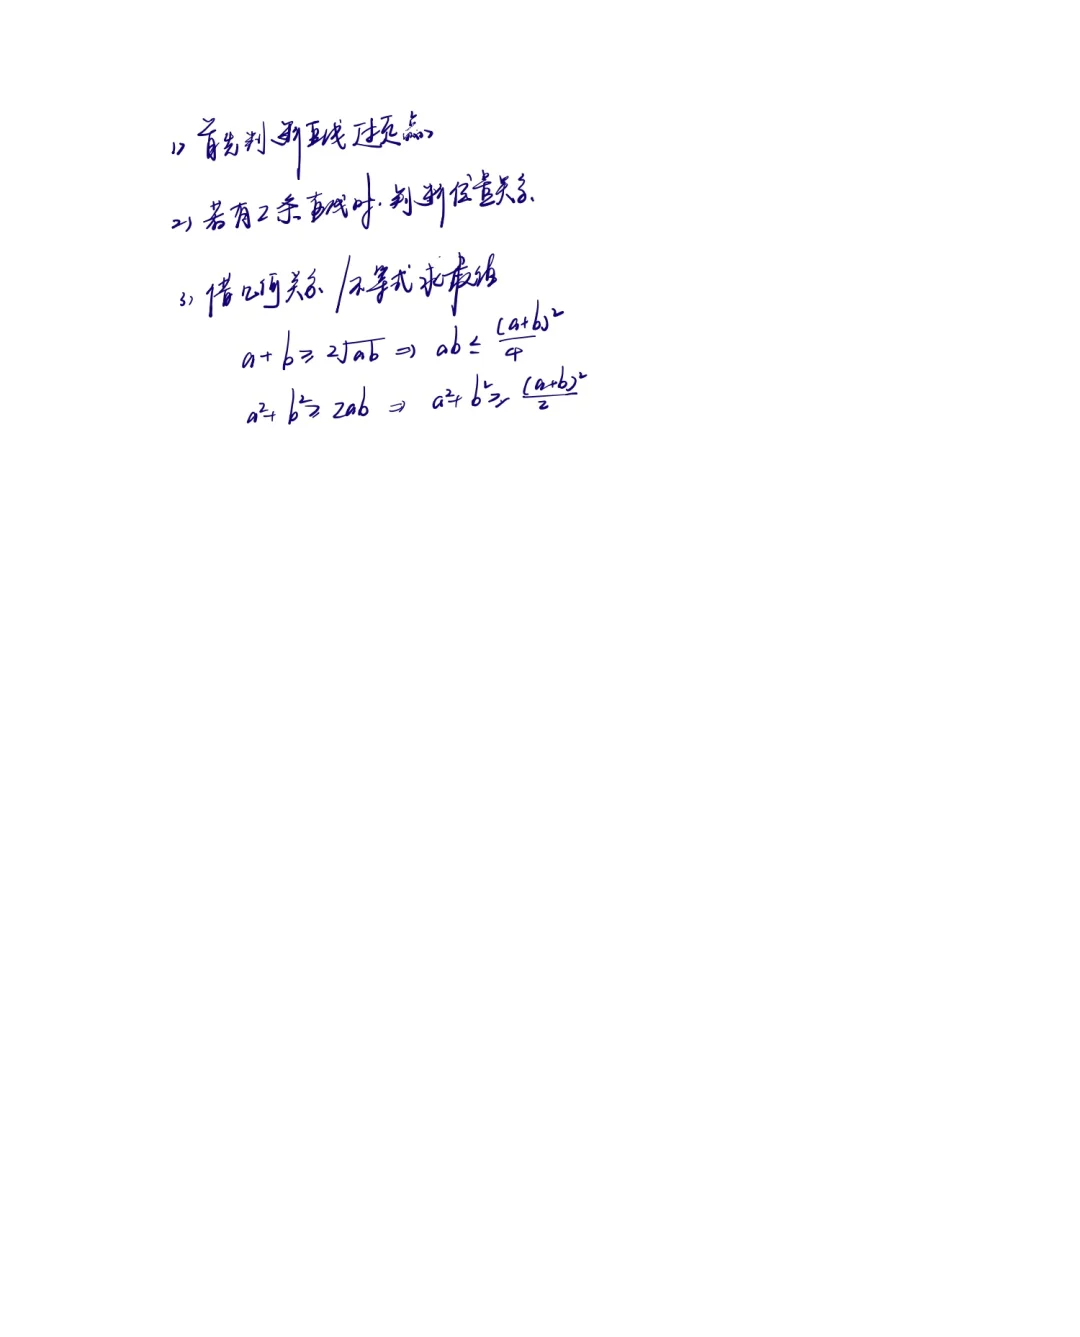 1) 首先判断直线过定点、
2) 若有2条直线时.判断位置关系.
3) 借几何关系/不等式求最值
a+b≥2√ab ⇒ ab≤(a+b)²/4
a²+b²≥2ab ⇒ a²+b²≥(a+b)²/2